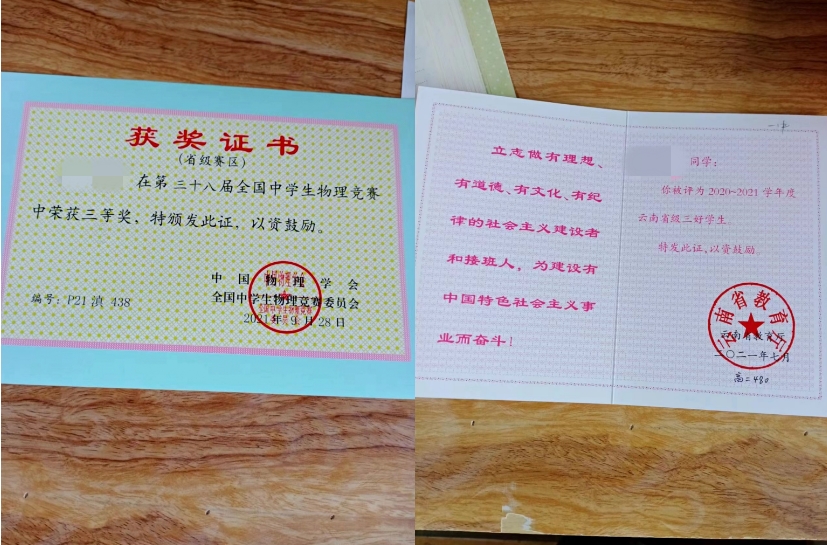 获奖证书
(省级赛区)
在第三十八届全国中学生物理竞赛
中荣获三等奖，特颁发此证，以资鼓励。
中国物理学会
全国中学生物理竞赛委员会
2021年9月28日
编号：P21滇438
立志做有理想、
有道德、有文化、有纪
律的社会主义建设者
和接班人，为建设有
中国特色社会主义事
业而奋斗！
同学：
你被评为2020~2021学年度
云南省级三好学生
特发此证，以资鼓励。
云南省教育厅
云南省教育厅
二〇二一年七月
高二480